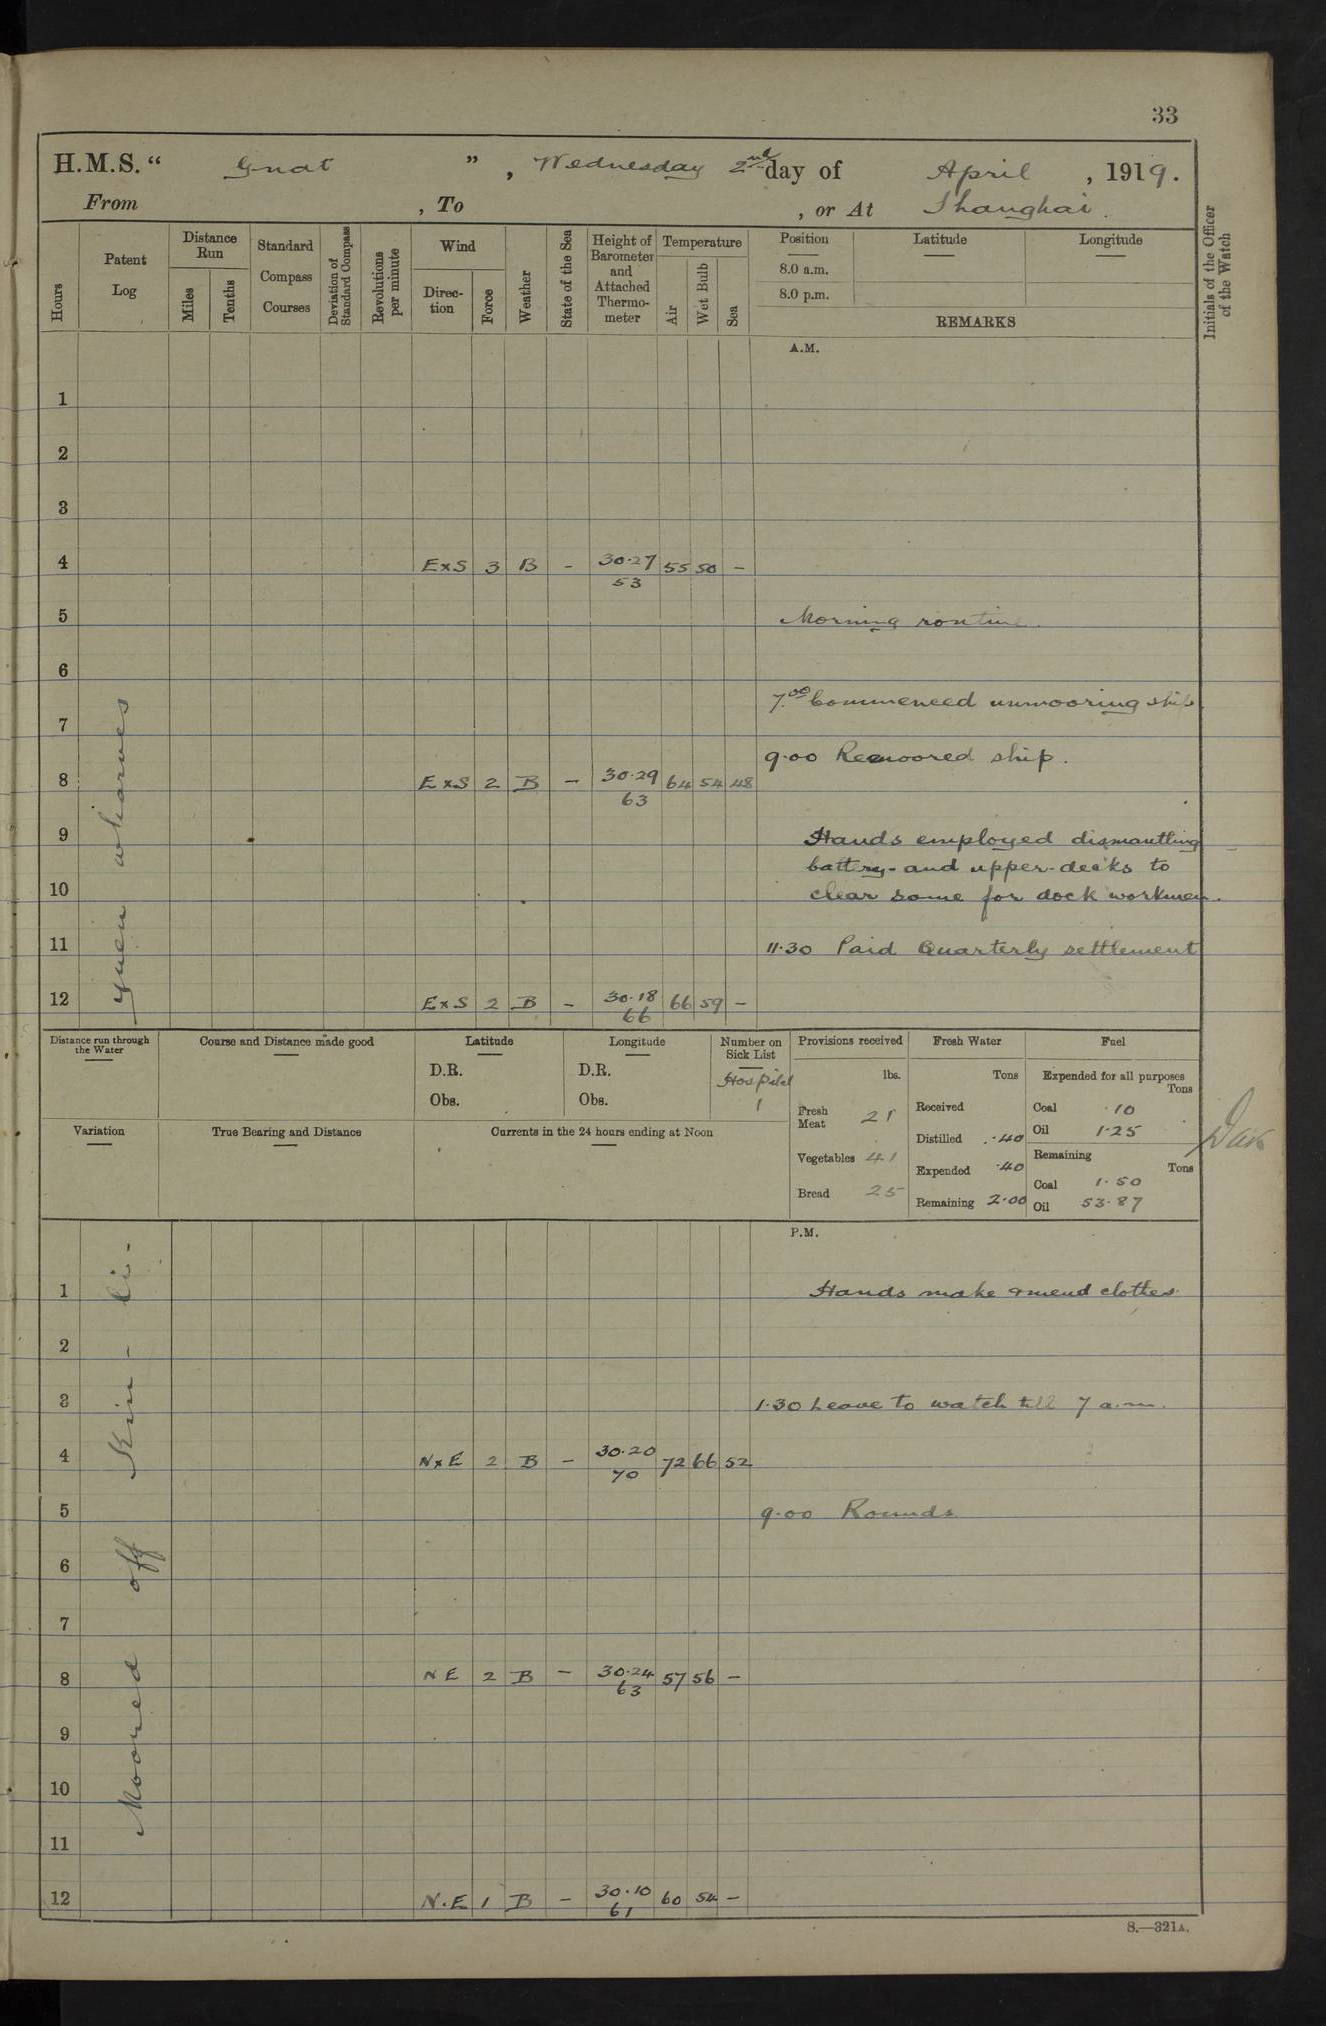 33
H.M.S. “ Gnat ” , Wednesday 2nd day of April , 1919.
From , To , or At Shanghai.
Hours
Patent Log
Distance Run
Miles
Tenths
Standard Compass Courses
Deviation of Standard Compass
Revolutions per minute
Wind
Direction
Force
Weather
State of the Sea
Height of Barometer and Attached Thermometer
Temperature
Air
Wet Bulb
Sea
Position
Latitude
Longitude
8.0 a.m.
8.0 p.m.
REMARKS
Initials of the Officer of the Watch
A.M.
1
2
3
4 ExS 3 B - 30.27 55 50 -
53
5 Morning routine.
6
7.00 Commenced unmooring ship
7
9.00 Remoored ship.
8 ExS 2 B - 30.29 64 54 48
63
9 Hands employed dismantling
battery - and upper-decks to
10 clear some for dock workmen.
11 11.30 Paid Quarterly settlement
12 ExS 2 B - 30.18 66 59 -
66
Distance run through the Water
Course and Distance made good
Latitude
D.R.
Obs.
Longitude
D.R.
Obs.
Number on Sick List
Hospital
1
Provisions received
lbs.
Fresh Meat 21
Vegetables 41
Bread 25
Fresh Water
Tons
Received
Distilled .40
Expended .40
Remaining 2.00
Fuel
Expended for all purposes
Tons
Coal .10
Oil 1.25
Remaining
Tons
Coal 1.50
Oil 53.87
Variation
True Bearing and Distance
Currents in the 24 hours ending at Noon
P.M.
1 Hands make & mend clothes.
2
3 1.30 Leave to watch till 7 a.m.
4 NxE 2 B - 30.20 72 66 52
70
5 9.00 Rounds
6
7
8 NE 2 B - 30.24 57 56 -
63
9
10
11
12 N.E 1 B - 30.10 60 54 -
61
Moored off Kin - li - yuen wharves
S.—321A.